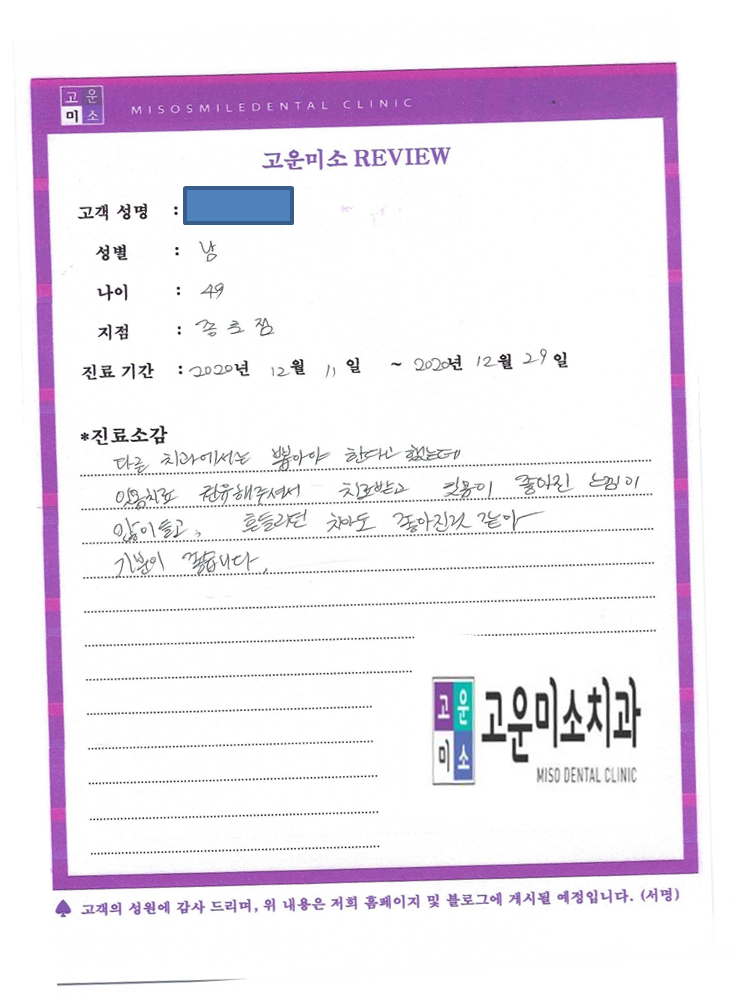 고운
미소
MISOSMILEDENTAL CLINIC
고운미소 REVIEW
고객 성명 :
성별 : 남
나이 : 49
지점 : 종로점
진료 기간 : 2020년 12월 11일 ~ 2020년 12월 29일
*진료소감
다른 치과에서는 뽑아야 한다고 했는데
잇몸치료 권유해주셔서 치료받고 잇몸이 좋아진 느낌이
많이들고, 흔들리던 치아도 좋아진것 같아
기분이 좋습니다.
고운
미소
고운미소치과
MISO DENTAL CLINIC
♠ 고객의 성원에 감사 드리며, 위 내용은 저희 홈페이지 및 블로그에 게시될 예정입니다. (서명)